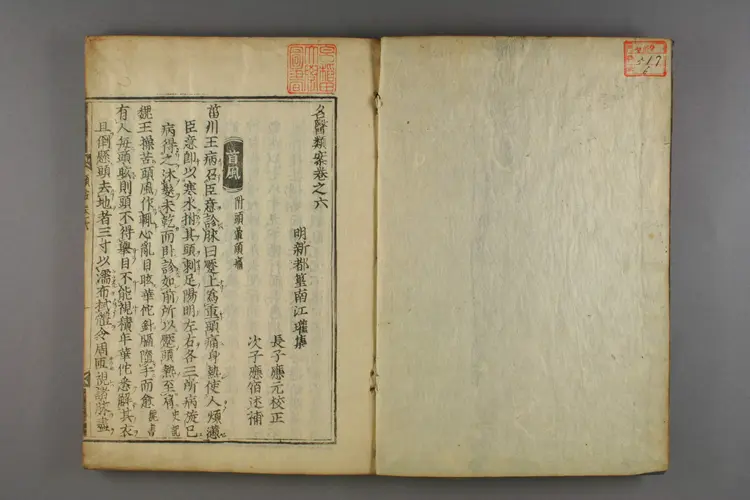 名醫類案卷之六
明新都篁南江瓘集
長子應元校正
次子應宿述補
首風
附頭暈頭痛
菑川王病召臣意診脉曰蹷上為重頭痛身熱使人煩懣
臣意即以寒水拊其頭刺足陽明左右各三所病旋已
病得之沐髮未乾而臥診如前所以蹷頭熱至肩 史記
魏王操苦頭風作輒心亂目眩華佗針鬲隨手而愈
有人每頭眩則頭不得舉目不能視積年華佗悉解其衣
且倒懸頭去地者三寸以濡布拭體令周匝視諸脉盡
517
6